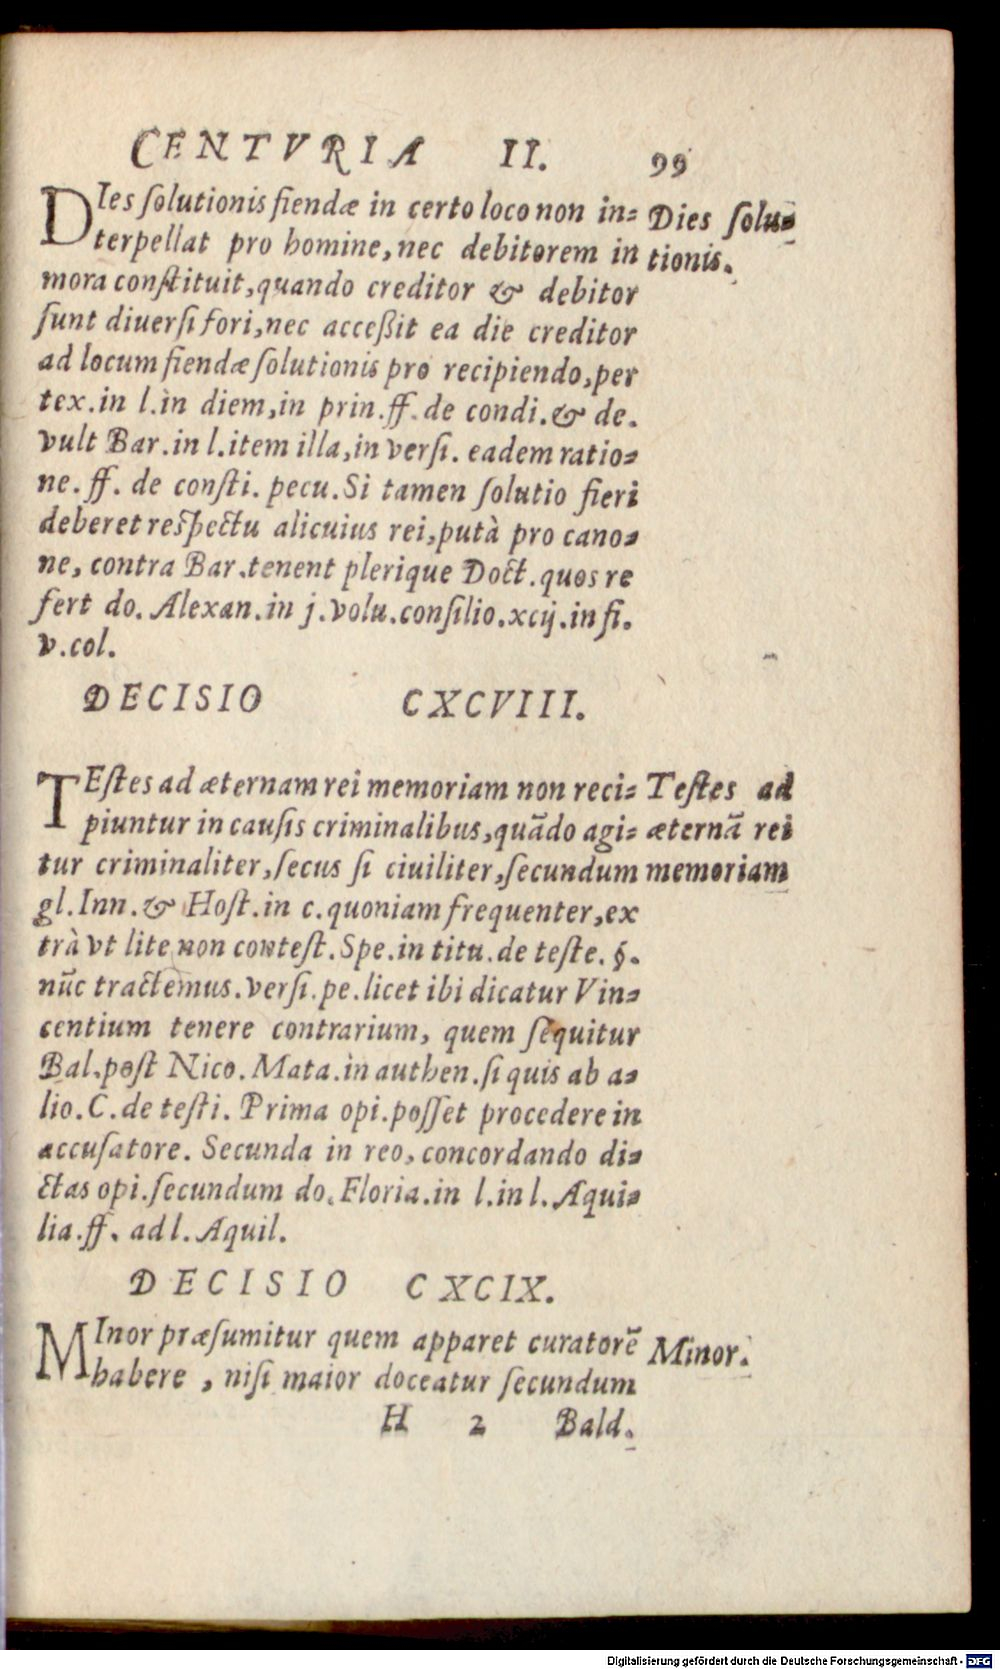 CENTVRIA II. 99
DIes ſolutionis fiendæ in certo loco non in=
terpellat pro homine, nec debitorem in
mora conſtituit, quando creditor & debitor
ſunt diuerſi fori, nec acceßit ea die creditor
ad locum fiendæ ſolutionis pro recipiendo, per
tex. in l. in diem, in prin. ff. de condi. & de.
vult Bar. in l. item illa, in verſi. eadem ratio=
ne. ff. de conſti. pecu. Si tamen ſolutio fieri
deberet reſpectu alicuius rei, putà pro cano=
ne, contra Bar. tenent plerique Doct. quos re
fert do. Alexan. in j. volu. conſilio. xcij. in fi.
v. col.
Dies ſolu=
tionis.
DECISIO CXCVIII.
TEſtes ad æternam rei memoriam non reci=
piuntur in cauſis criminalibus, quãdo agi=
tur criminaliter, ſecus ſi ciuiliter, ſecundum
gl. Inn. & Hoſt. in c. quoniam frequenter, ex
trà vt lite non conteſt. Spe. in titu. de teſte. §.
nũc tractemus. verſi. pe. licet ibi dicatur Vin=
centium tenere contrarium, quem ſequitur
Bal. poſt Nico. Mata. in authen. ſi quis ab a=
lio. C. de teſti. Prima opi. poſſet procedere in
accuſatore. Secunda in reo, concordando di=
ctas opi. ſecundum do. Floria. in l. in l. Aqui=
lia. ff. ad l. Aquil.
Teſtes ad
æternã rei
memoriam
DECISIO CXCIX.
MInor præſumitur quem apparet curatorẽ
habere, niſi maior doceatur ſecundum
Minor.
H 2 Bald.
Digitalisierung gefördert durch die Deutsche Forschungsgemeinschaft - DFG